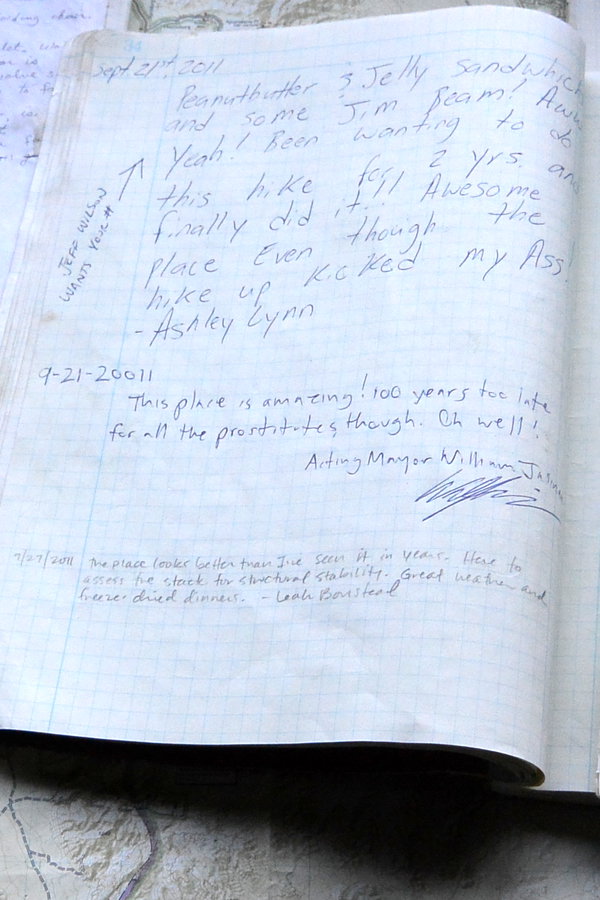 34
Sept. 21st, 2011
Peanutbutter & Jelly Sandwhich
and some Jim Beam! Aww
Yeah! Been wanting to do
this hike for 2 yrs. and
finally did it!!! Awesome
place Even though the
hike up kicked my Ass!
- Ashley Lynn
JEFF WILSON
WANTS YOUR #
9-21-20011
This place is amazing! 100 years too late
for all the prostitutes though. Oh well!
Acting Mayor William
9/27/2011 The place looks better than I've seen it in years. Here to
assess the stack for structural stability. Great weather and
freeze-dried dinners. - Leah Bonstead